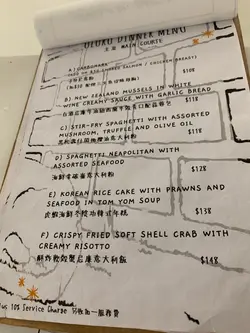 OLOKU DINNER MENU
主菜 MAIN COURSE
A) CARBONARA
(SMOKED SALMON / CHICKEN BREAST)
$108
B) NEW ZEALAND MUSSELS IN WHITE
WINE CREAMY SAUCE WITH GARLIC BREAD
$118
C) STIR-FRY SPAGHETTI WITH ASSORTED
MUSHROOM, TRUFFLE AND OLIVE OIL
$108
D) SPAGHETTI NEAPOLITAN WITH
ASSORTED SEAFOOD
海鮮 意大利粉
$128
E) KOREAN RICE CAKE WITH PRAWNS AND
SEAFOOD IN TOM YOM SOUP
虎蝦海鮮冬陰功韓式年糕
$138
F) CRISPY FRIED SOFT SHELL CRAB WITH
CREAMY RISOTTO
鮮炸軟殼蟹忌廉意大利飯
$148
Plus 10% Service Charge 另收加一服務費